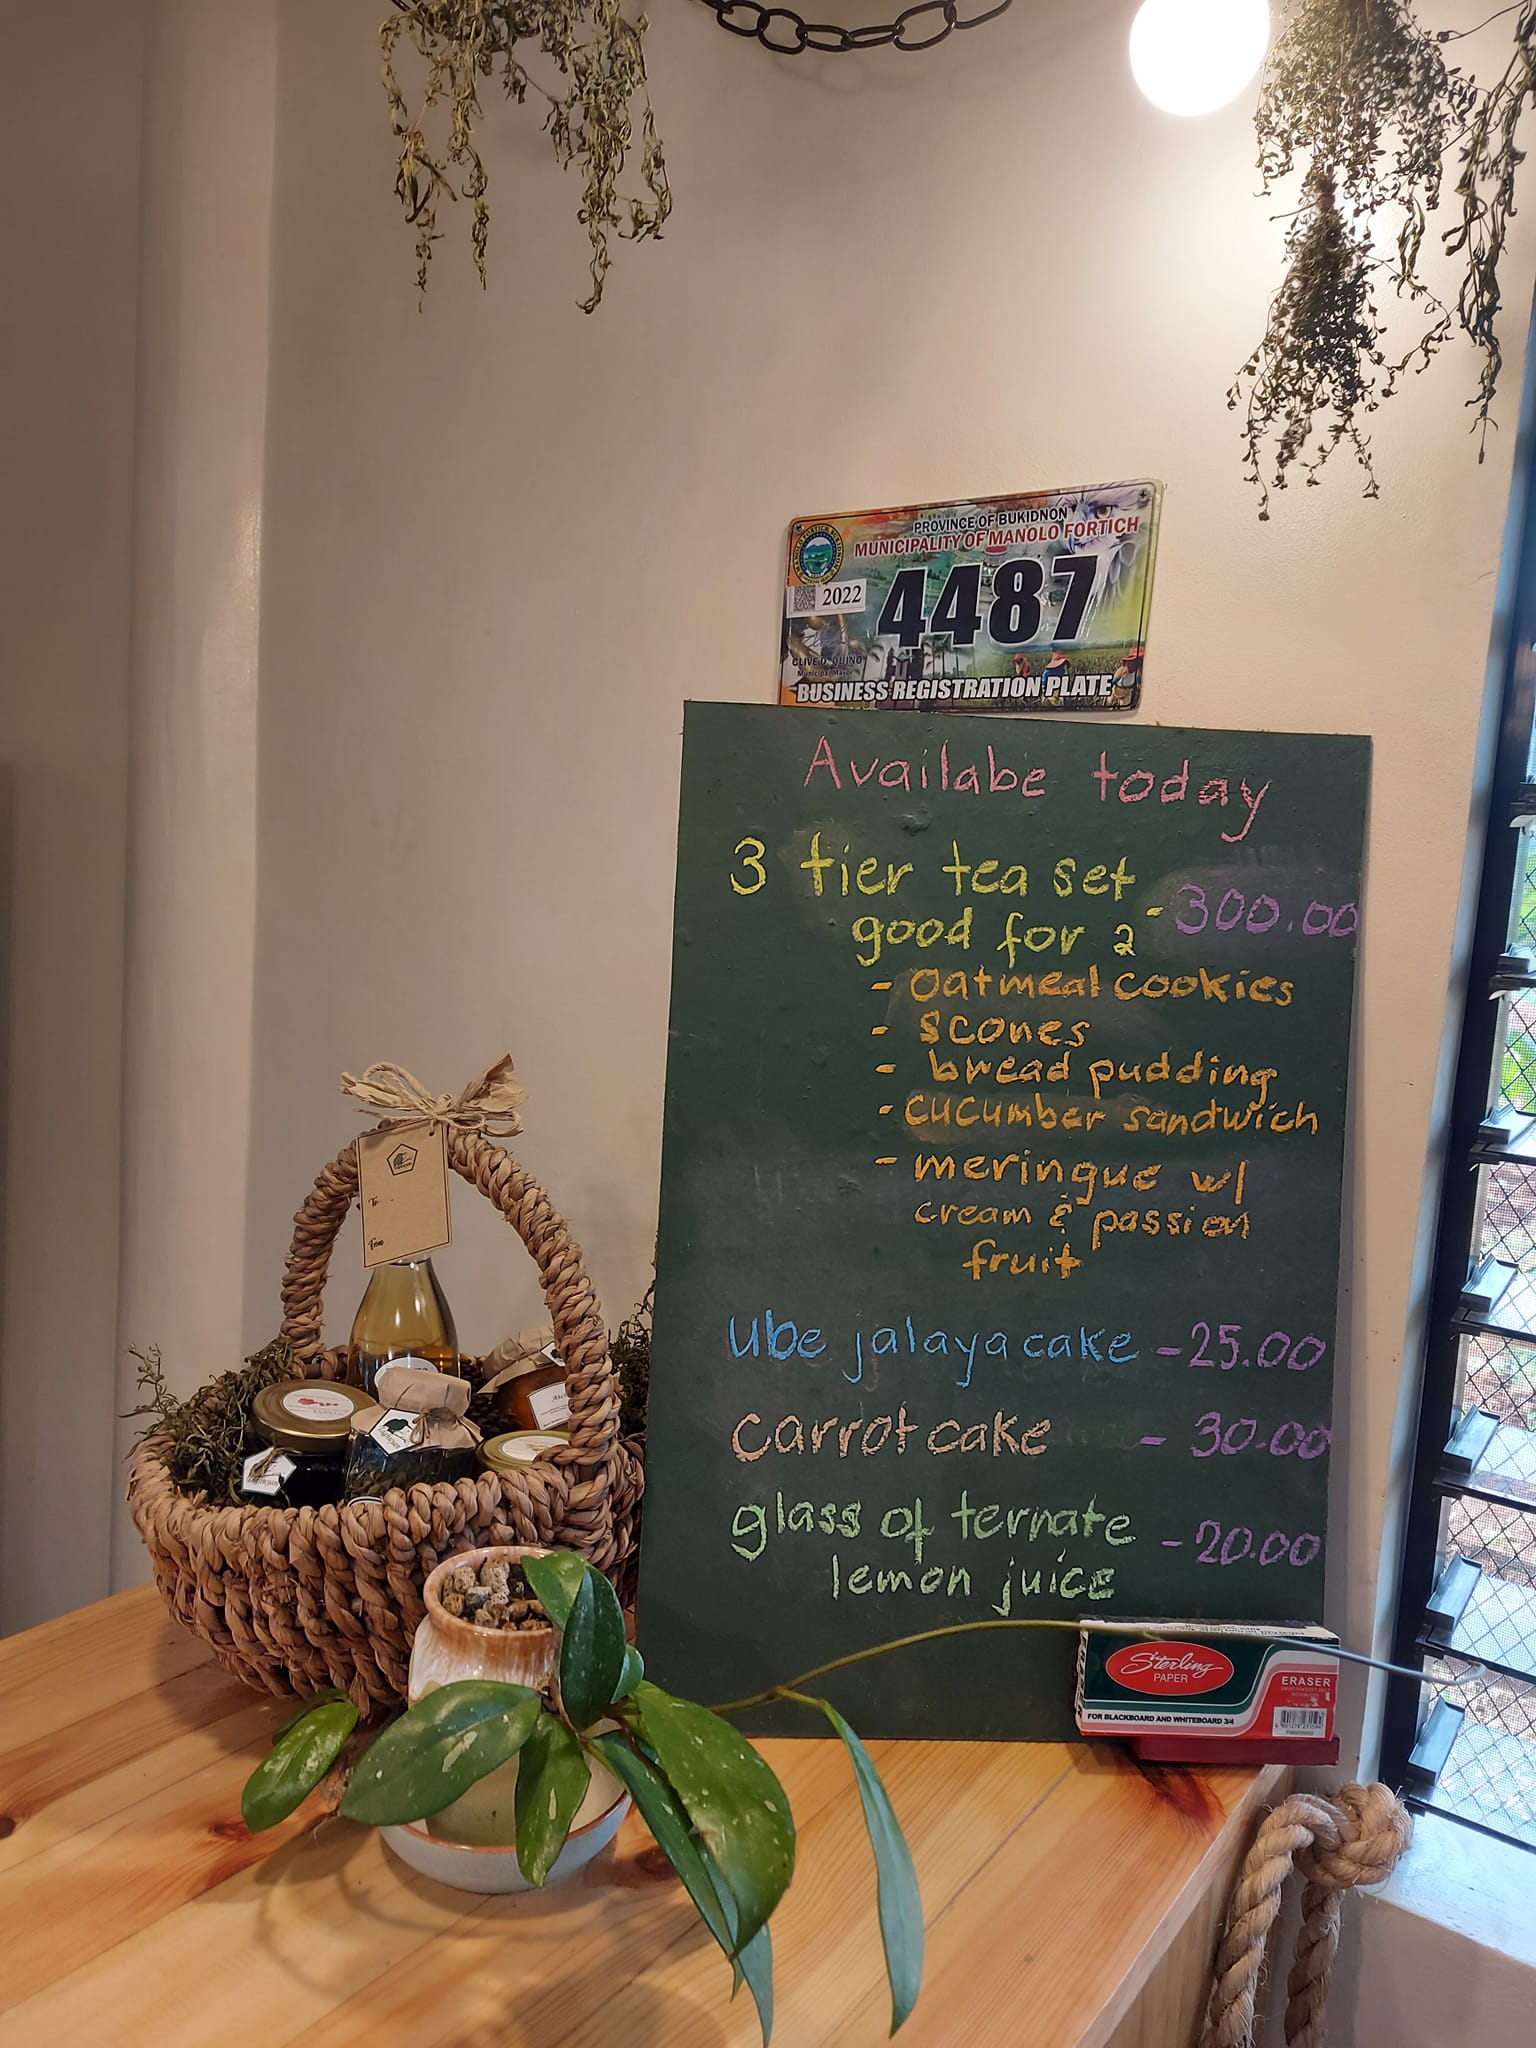 PROVINCE OF BUKIDNON
MUNICIPALITY OF MANOLO FORTICH
2022
4487
CLIVE D. QUIÑO
Municipal Mayor
BUSINESS REGISTRATION PLATE
Availabe today
3 tier tea set
good for 2 - 300.00
- Oatmeal cookies
- scones
- bread pudding
- cucumber sandwich
- meringue w/
cream & passion
fruit
Ube jalaya cake - 25.00
Carrot cake - 30.00
glass of ternate
lemon juice - 20.00
To:
From:
Sterling
PAPER
ERASER
FOR BLACKBOARD AND WHITEBOARD 3/4